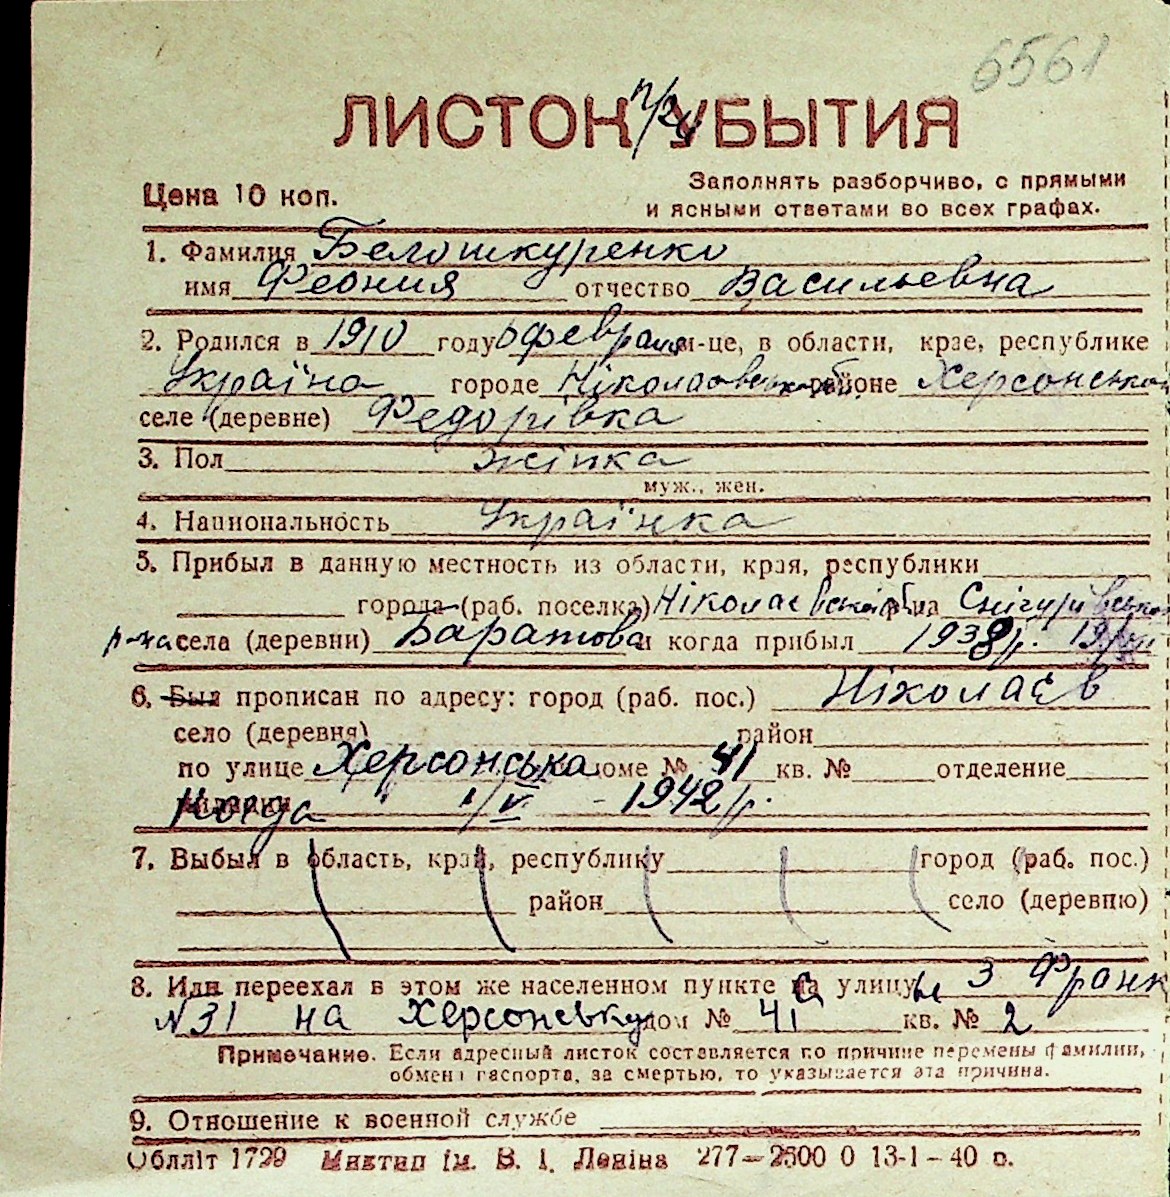 6561
ЛИСТОК УБЫТИЯ
Цена 10 коп.
Заполнять разборчиво, с прямыми
и ясными ответами во всех графах.
1. Фамилия Белошкуренко
имя Феония отчество Васильевна
2. Родился в 1910 году 6 февраля м-це, в области, крае, республике
Україна городе Ніколаевської обл. районе Херсонськом
селе (деревне) Федорівка
3. Пол жінка
муж., жен.
4. Национальность Українка
5. Прибыл в данную местность из области, края, республики
города (раб. поселка) Ніколаевської обл. Снігурівського
р-на села (деревни) Баратовка и когда прибыл 1938 р.
6. Был прописан по адресу: город (раб. пос.) Ніколаєв
село (деревня) район
по улице Херсонська доме № 41 кв. № отделение
Когда 1/V - 1942 р.
7. Выбыл в область, край, республику город (раб. пос.)
район село (деревню)
8. Или переехал в этом же населенном пункте на улицу з Франк
N 31 на Херсонську дом № 41 кв. № 2
Примечание. Если адресный листок составляется по причине перемены фамилии,
обмена паспорта, за смертью, то указывается эта причина.
9. Отношение к военной службе
Обlліт 1729 Миктип ім. В. І. Леніна 277—2500 0 13-1-40 р.